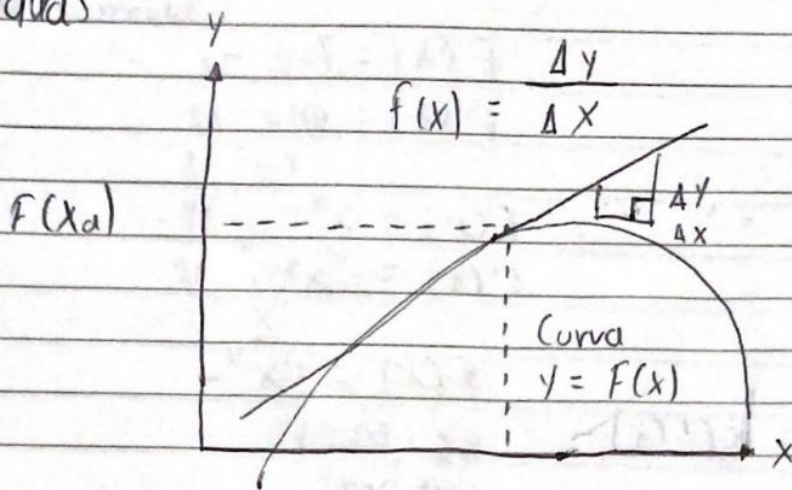 y
f(x) = Δy / Δx
F(xa)
Δy
Δx
Curva
y = F(x)
x